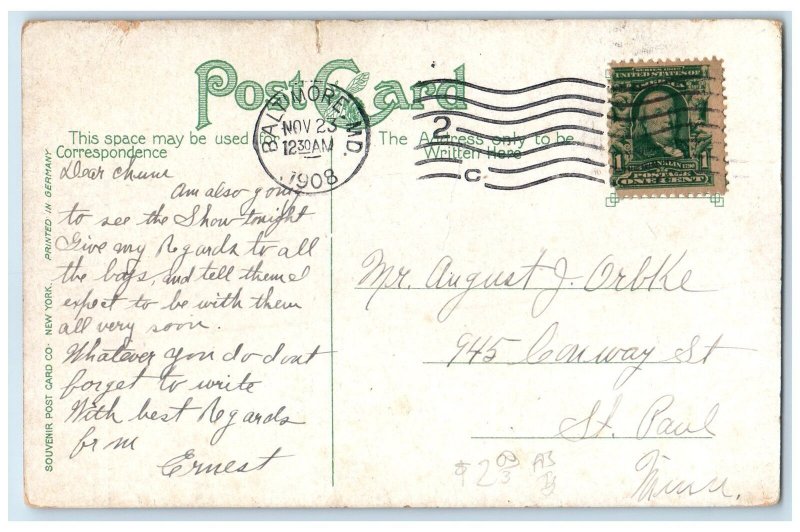 Post Card
This space may be used for
Correspondence
The Address only to be
Written Here
BALTIMORE, MD.
NOV 23
12 30 AM
1908
2
C
SERIES 1902
UNITED STATES OF
AMERICA
1 1
POSTAGE
ONE CENT
PRINTED IN GERMANY
SOUVENIR POST CARD CO. NEW YORK,
Dear chum
Am also going
to see the Show tonight
Give my Regards to all
the boys, and tell them I
expect to be with them
all very soon.
Whatever you do dont
forget to write
With best Regards
from
Ernest
Mr. August J. Orbke
945 Conway St
St. Paul
Minn.
$2